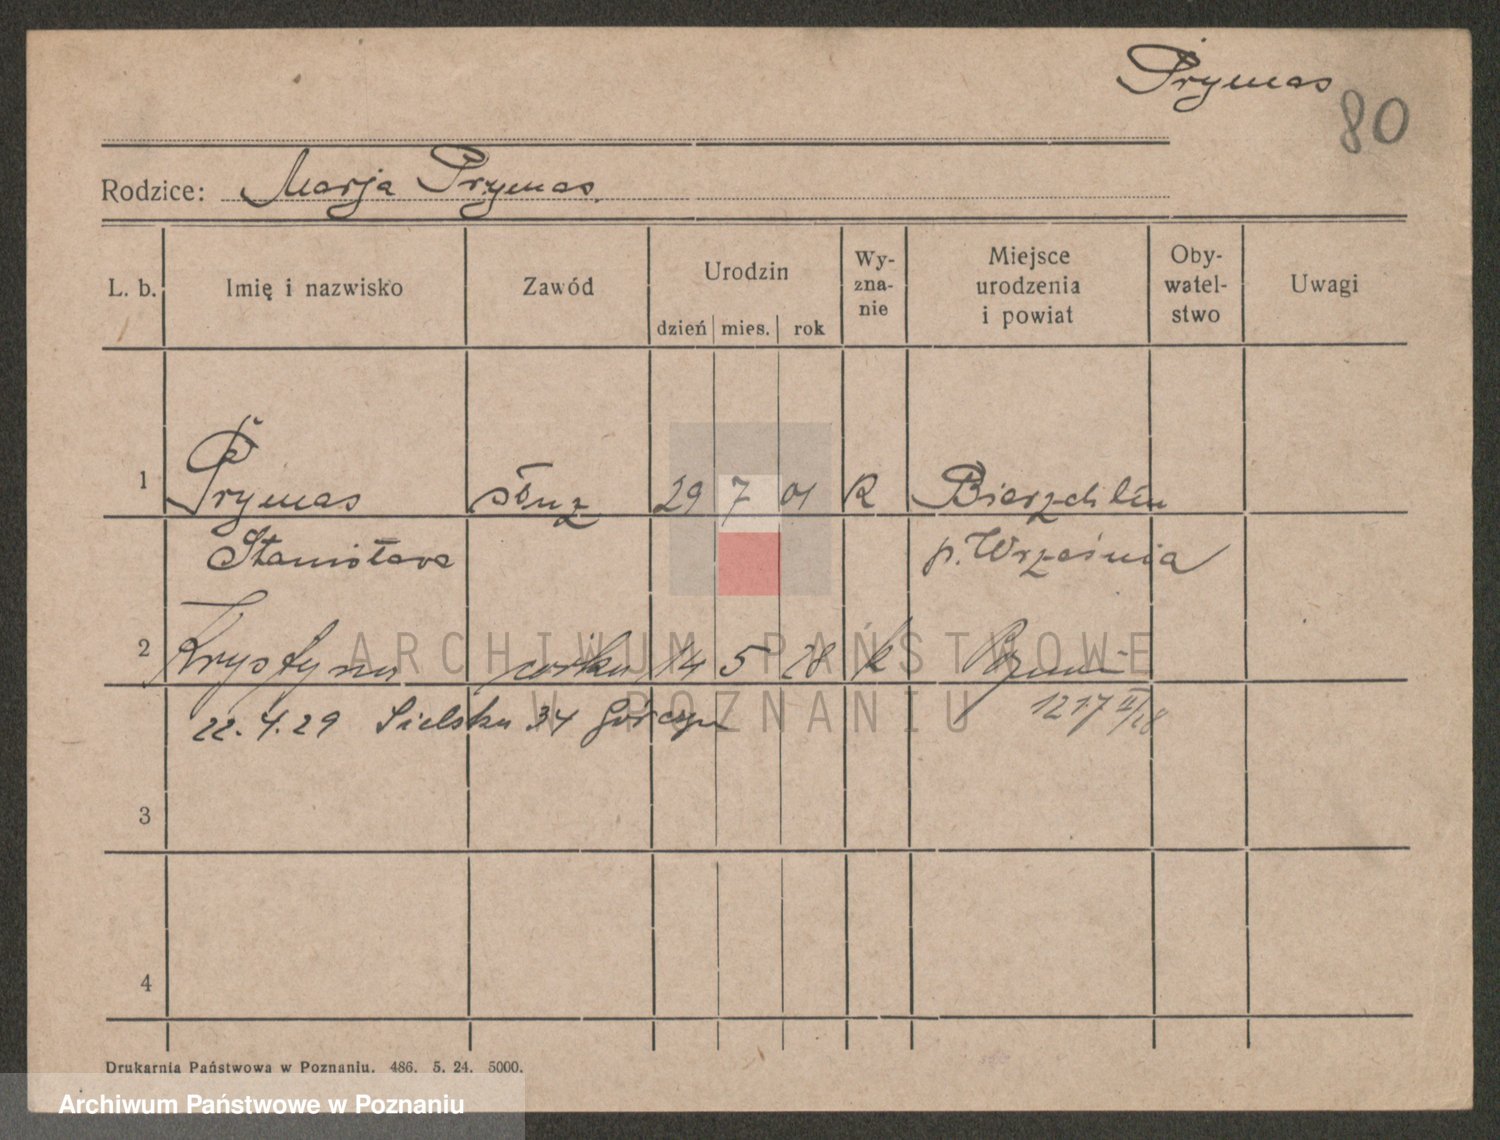 Prymas
80
Rodzice: Marja Prymas.
L. b. Imię i nazwisko Zawód Urodzin dzień mies. rok Wy-zna-nie Miejsce urodzenia i powiat Oby-watel-stwo Uwagi
1 Prymas służ 29 7 01 R Bierzchlin
Stanisława p. Września
2 Krystyna córka 14 5 28 k Poznań
22.4.29 Sielska 34 Górczyn 1217 II/28
3
4
Drukarnia Państwowa w Poznaniu. 486. 5. 24. 5000.
ARCHIWUM PAŃSTWOWE
W POZNANIU
Archiwum Państwowe w Poznaniu